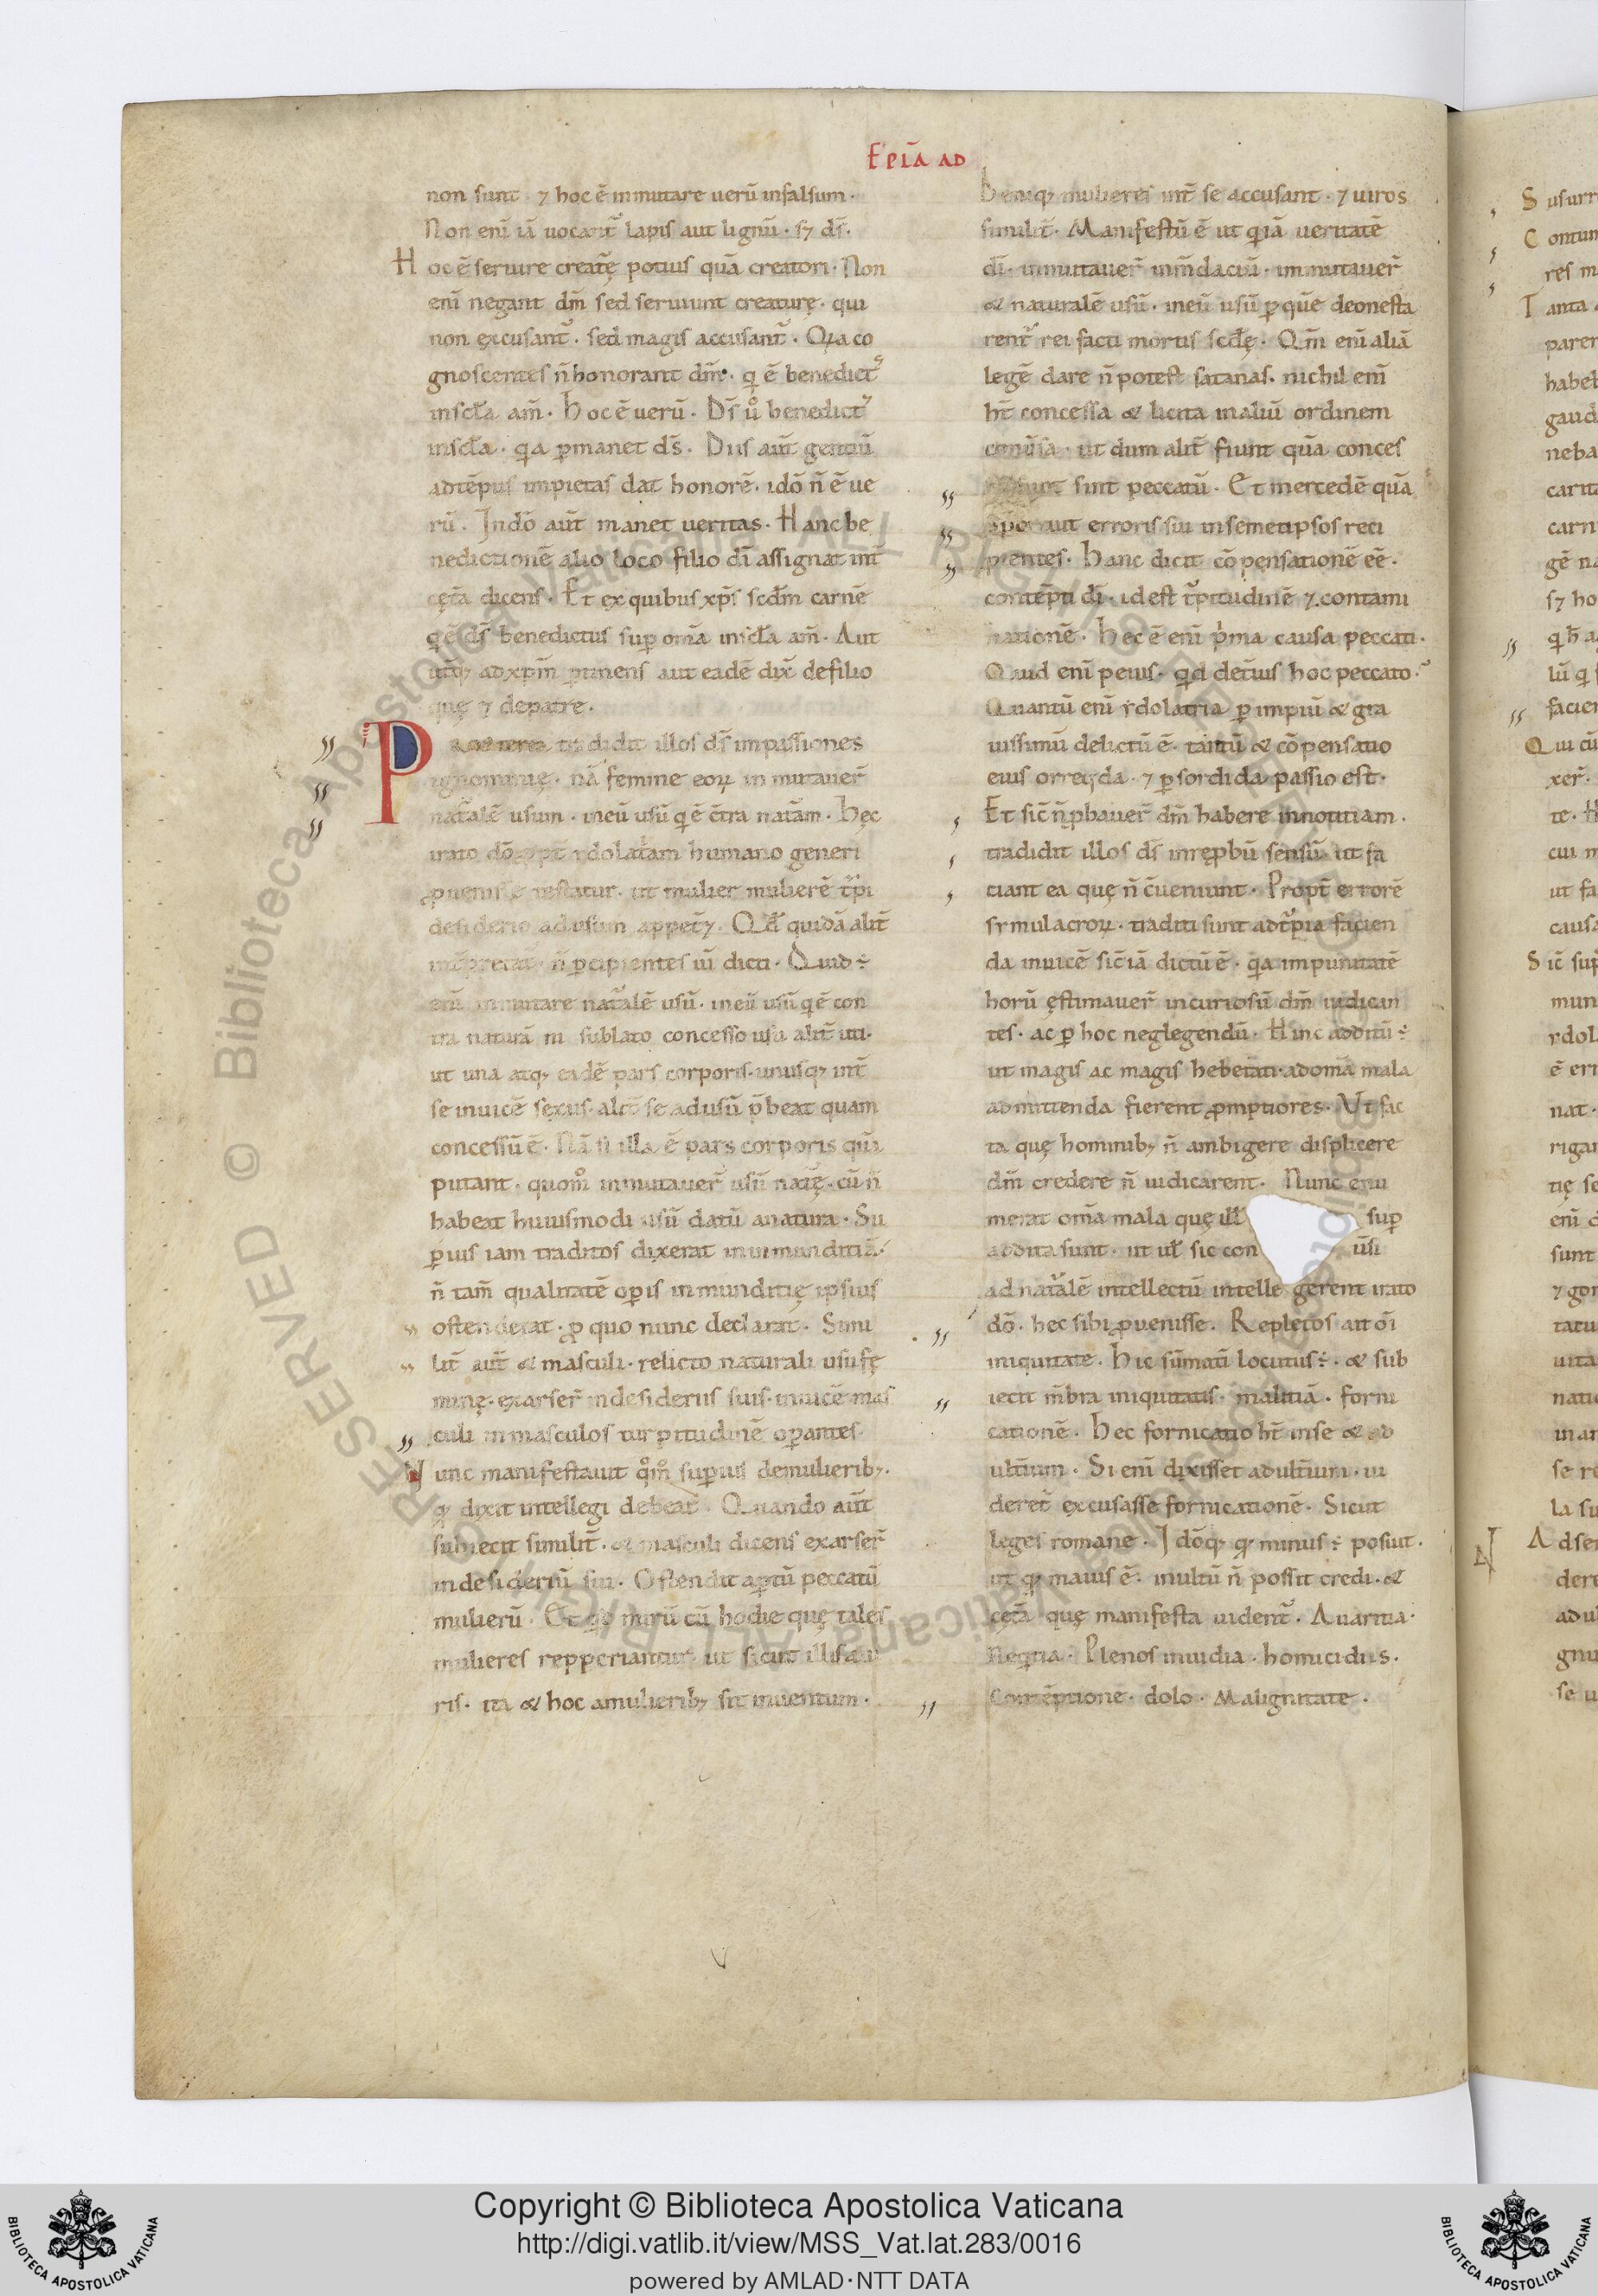 Epła ad
non sunt · ⁊ hoc ē inmutare uerū infalsum ·
Non enī iā uocant᷑ lapis aut lignū · sꝫ ds̄ ·
Hoc ē seruire creat̄ę potius quā creatori · Non
enī negant dm̄ sed seruiunt creaturę · qui
non excusant᷑ · sed magis accusant᷑ · Qꝛa co
gnoscentes n̄ honorant dm̄ · q ē benedictꝰ
inscl̄a am̄ · Hoc ē uerū · Ds̄ ů benedictꝰ
inscl̄a · qa ꝑmanet ds̄ · Diis aut̄ gentiū
adtēpus impietas dat honorē · idō n̄ ē ue
rū · Indō aut̄ manet ueritas · Hanc be
nedictionē alio loco filio dī assignat int̄
cęt̄a dicens · Et ex quibus xp̄s scdm̄ carnē
q ē ds̄ benedictus suꝑ om̄a inscl̄a am̄ · Aut
utiqꝫ adxpm̄ ꝑtinens aut eadē dix̄ defilio
quę ⁊ depatre ·
Propterea tradidit illos ds̄ inpassiones
ignominię · nā femine eoꝝ inmutauer̄
nat᷑alē usum · ineū usū q ē c̄tra nat᷑am · Hęc
irato dō ꝓpt̄ ydolat᷑iam humano generi
ꝓuenisse testatur · ut mulier mulierē t᷑pi
desiderio adusum appetꝫ · Qd̄ quidā alit̄
int̄pretāt · n̄ ꝑcipientes uī dicti · Quid ÷
enī inmutare nat᷑alē usū · ineū usū q ē con
tra naturā nı sublato concesso usu alit̄ uti ·
ut una atqꝫ eadē pars corporis · utriusqꝫ int̄
se inuicē sexus · alit̄ se adusū p̄beat quam
concessū ē · Nā si illa ē pars corporis quā
putant · quom̊ inmutauer̄ usū nat᷑ę · cū n̄
habeat huiusmodi usū datū anatura · Su
ꝑius iam traditos dixerat inimmunditiā ·
n̄ tam̄ qualitatē oꝑis inmunditię ipsius
ostenderat · ꝓ quo nunc declarat · Simi
lit̄ aut̄ et masculi · relicto naturali usu fę
minę · exarser̄ indesideriis suis · inuicē mas
culi inmasculos turpitudinē oꝑantes ·
Nunc manifestauit qm̊ suꝑius demulieribꝫ ·
qꝫ dixit intellegi debeat · Quando aut̄
subiecit similit̄ · et masculi dicens exarser̄
indesideriū sui · Ostendit aꝑtū peccatū
mulierū · Et qd mirū cū hodie quę tales
mulieres repperiantur ut sicut illis aui
ris · ita et hoc amulieribꝫ sit inuentum ·
Deniqꝫ mulieres int̄ se accusant · ⁊ uiros
similit̄ · Manifestū ē ut q̄a iā ueritatē
dī · inmutauer̄ inm̄daciū · inmutauer̄
et naturalē usū · ineū usū ꝑ quē deonesta
rent᷑ rei facti mortis scd̄ę · Qm̄ enī aliā
legē dare n̄ potest satanas · nichil enī
ht̄ concessa et licita inaliū ordinem
conūsa · ut dum alit̄ fiunt quā conces
sint peccatū · Et mercedē quā
oportuit erroris sui insemetipsos reci
pientes · Hanc dicit cōpensationē eē ·
contēpti dī · id est t᷑pitudinē ⁊ contami
nationē · Hec ē enī p̍ma causa peccati ·
Quid enī peius · qd det̄ius hoc peccato ·
Quantū enī ydolatria ꝑ impiū et gra
uissimū delictū ē · tantū et cōpensatio
eius orrenda · ⁊ ꝑ sordida passio est ·
Et sic̄ n̄ ꝓbauer̄ dm̄ habere innotitiam ·
tradidit illos ds̄ inreꝓbū sensū ut fa
ciant ea quę n̄ c̄ueniunt · Propt̄ errorē
symulacroꝝ · traditi sunt adt᷑pia facien
da inuicē sic̄ iā dictū ē · q̄a impunitatē
horū ęstimauer̄ incuriosū dm̄ iudican
tes · ac ꝑ hoc neglegendū · Hinc additū ÷
ut magis ac magis hebetati · adom̄a mala
admittenda fierent ꝓmptiores · Ut fac
ta quę hominibꝫ n̄ ambigere displicere
dm̄ credere n̄ iudicarent · Nunc enu
merat om̄a mala quę ill suꝑ
addita sunt · ut ul̄ sic con ūsi
adnat᷑alē intellectū intelle gerent irato
dō · hec sibi ꝓuenisse · Repletos att oī
iniquitate · Hic sūmati locutus ÷ · et sub
iecit m̄bra iniquitatis · malitiā · forni
cationē · Hec fornicatio ht̄ inse et ad
ult̄ium · Si enī dixisset adult̄ium · ui
deret᷑ excusasse fornicationē · Sicut
leges romane · Idōqꝫ qꝫ minus ÷ posuit ·
ut qꝫ maius ē · inultū n̄ possit credi · et
cęt̄a quę manifesta uident᷑ · Auaritia ·
Neqtia · Plenos inuidia · homicidiis ·
Contēptione · dolo · Malignitate ·
Copyright © Biblioteca Apostolica Vaticana
http://digi.vatlib.it/view/MSS_Vat.lat.283/0016
powered by AMLAD·NTT DATA
BIBLIOTECA APOSTOLICA VATICANA
BIBLIOTECA APOSTOLICA VATICANA